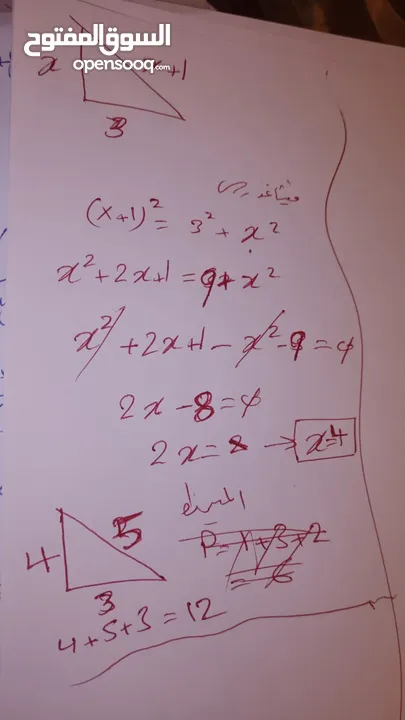 السوق المفتوح
opensooq.com
x
x+1
3
فيثاغورس
(x+1)² = 3² + x²
x² + 2x + 1 = 9 + x²
x² + 2x + 1 - x² - 9 = 0
2x - 8 = 0
2x = 8 → x=4
المحيط
4
5
3
4 + 5 + 3 = 12